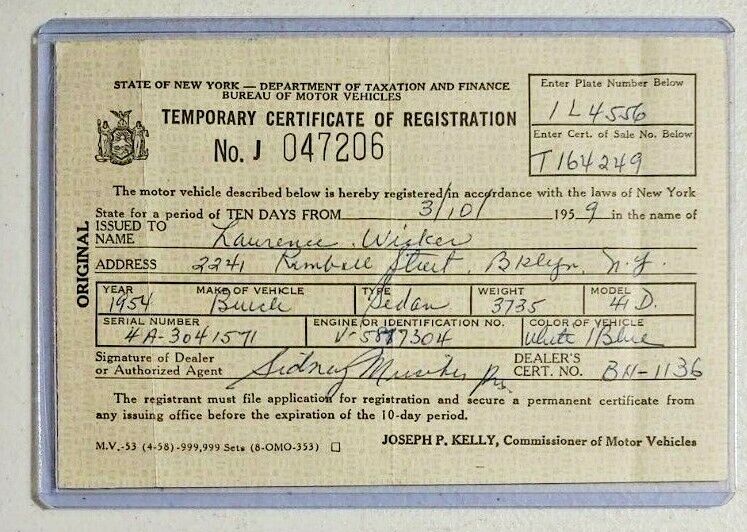 STATE OF NEW YORK — DEPARTMENT OF TAXATION AND FINANCE
BUREAU OF MOTOR VEHICLES
TEMPORARY CERTIFICATE OF REGISTRATION
No. J 047206
Enter Plate Number Below
1L4556
Enter Cert. of Sale No. Below
T164249
The motor vehicle described below is hereby registered in accordance with the laws of New York
State for a period of TEN DAYS FROM 3/10/ 1959 in the name of
ORIGINAL
ISSUED TO
NAME Laurence
ADDRESS 2241 Kimball Street, Bklyn, N.Y.
YEAR MAKE OF VEHICLE TYPE WEIGHT MODEL
1954 Buick Sedan 3735 41D.
SERIAL NUMBER ENGINE OR IDENTIFICATION NO. COLOR OF VEHICLE
4A-3041571 White/Blue
Signature of Dealer
or Authorized Agent Sidney
DEALER'S
CERT. NO. BN-1136
The registrant must file application for registration and secure a permanent certificate from
any issuing office before the expiration of the 10-day period.
M.V.-53 (4-58)-999,999 Sets (8-OMO-353)
JOSEPH P. KELLY, Commissioner of Motor Vehicles